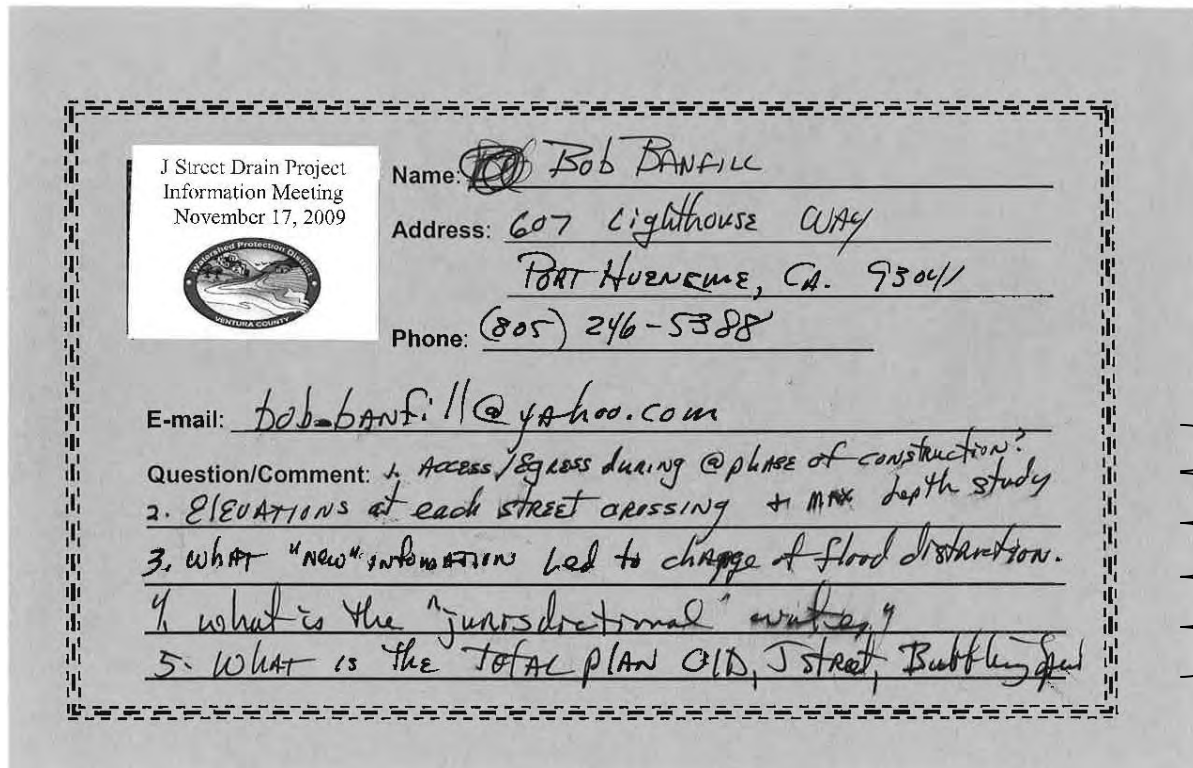 J Street Drain Project
Information Meeting
November 17, 2009
Watershed Protection District
VENTURA COUNTY
Name: Bob BANFILL
Address: 607 Lighthouse WAY
PORT HUENEME, CA. 93041
Phone: (805) 246-5388
E-mail: bob_banfill@yahoo.com
Question/Comment: 1. Access/Egress during @ phase of construction?
2. Elevations at each street crossing + max depth study
3. what "new" information led to change of flood
4. what is the "jurisdictional"
5. What is the TOTAL plan OID, J street, Bubbling